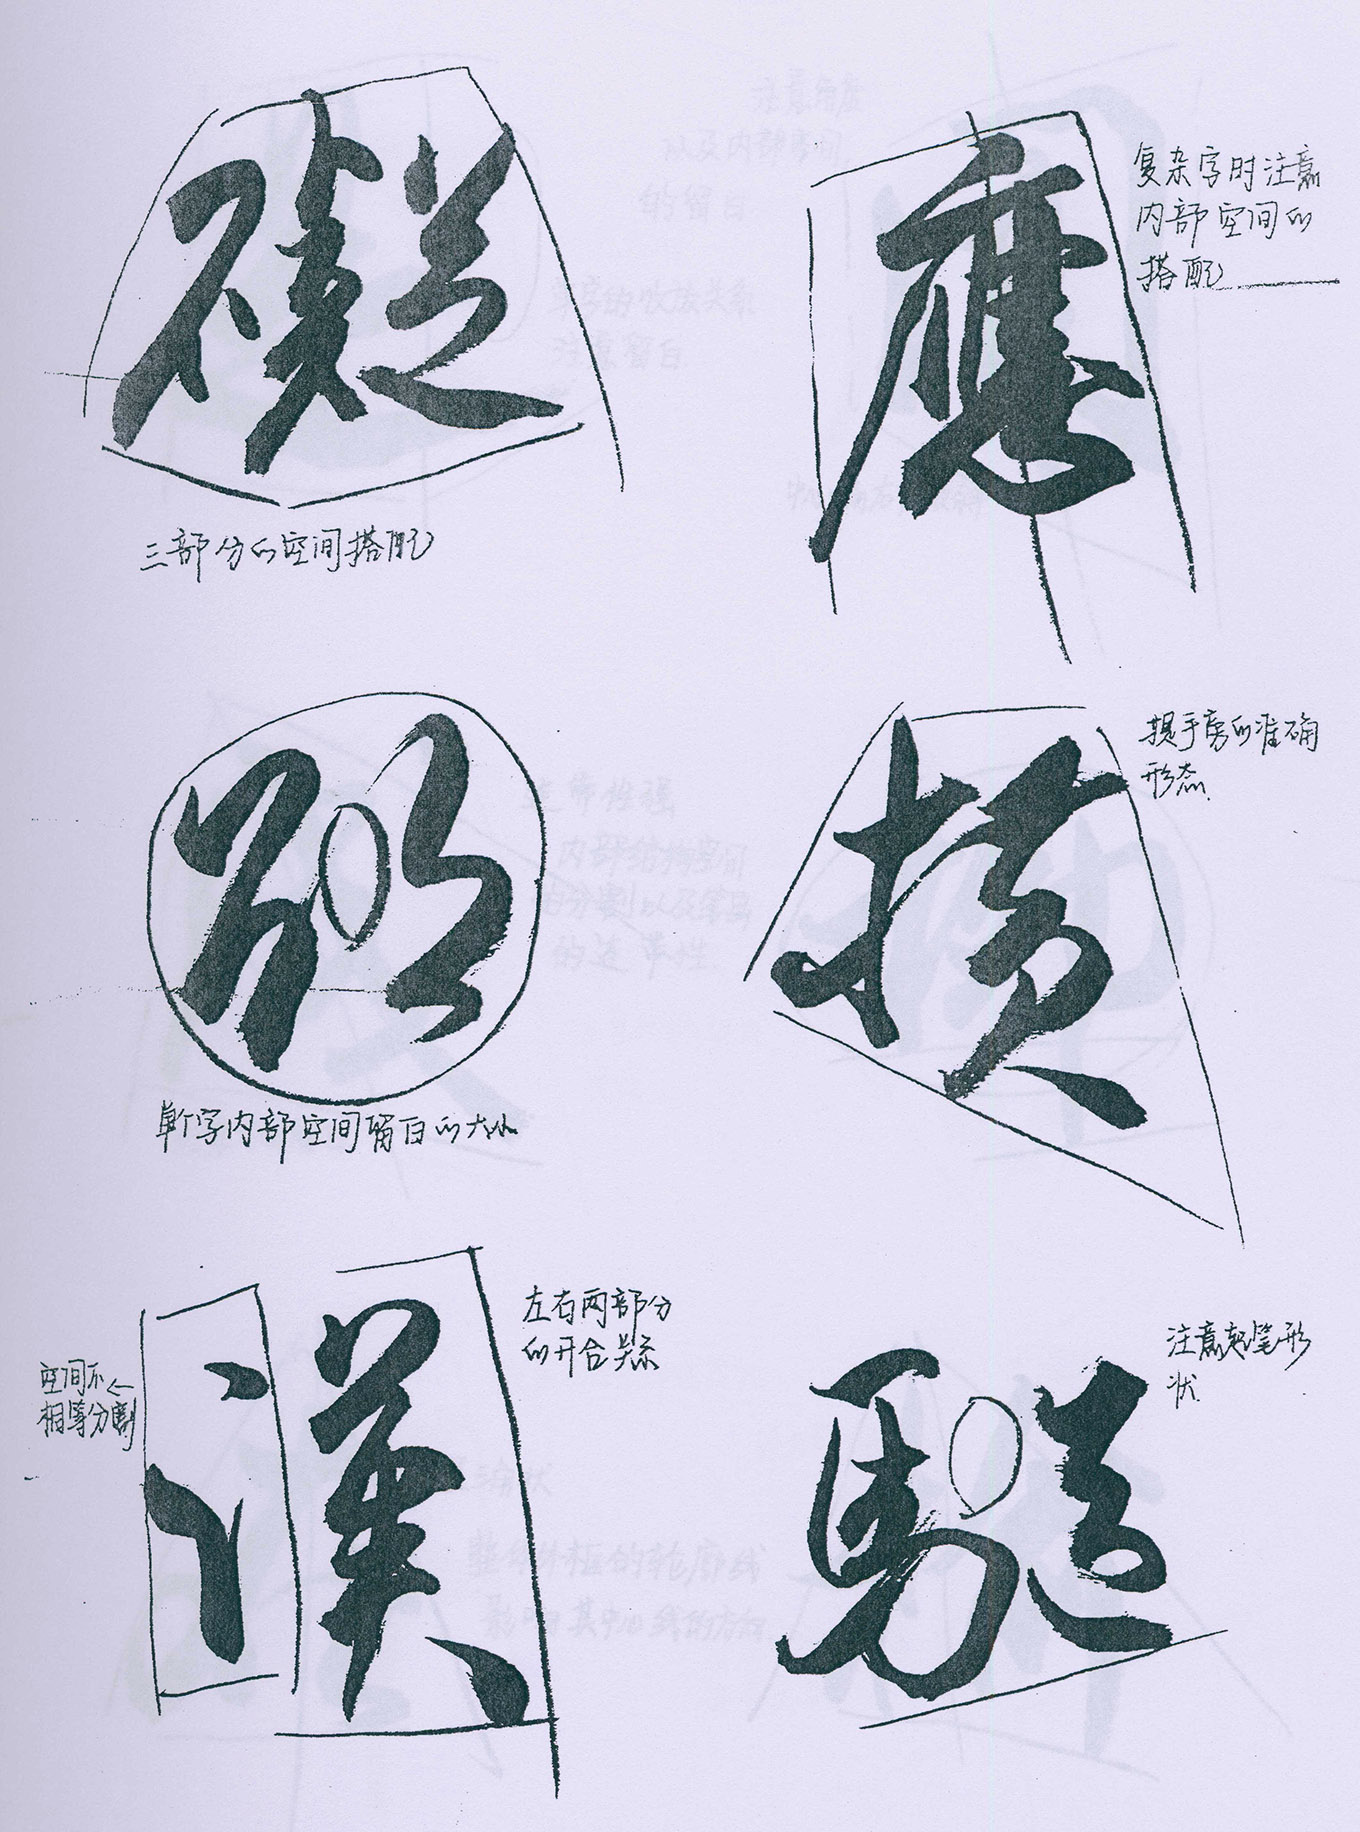 應
复杂字时注意
内部空间的
搭配
三部分的空间搭配
横
提手旁的准确
形态
单个字内部空间留白的大小
漢
左右两部分
的开合关系
空间不
相等分割
注意起笔形
状